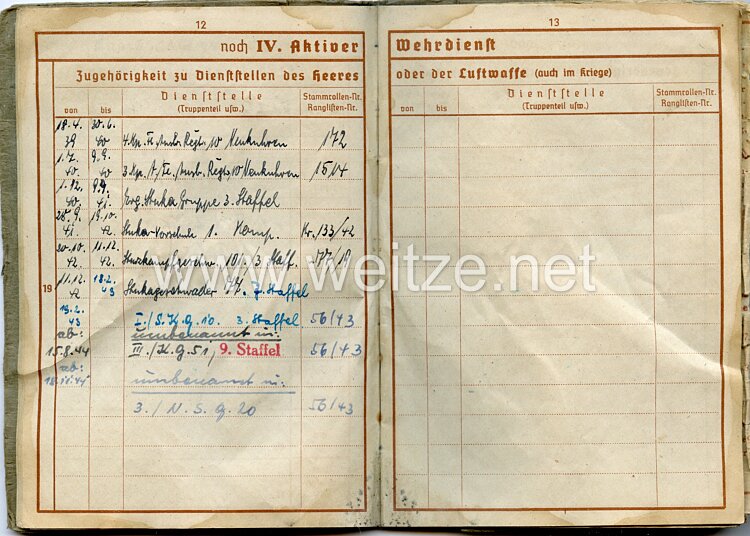 12
noch IV. Aktiver
Zugehörigkeit zu Dienststellen des Heeres
von bis Dienststelle (Truppenteil usw.) Stammrollen-Nr. Ranglisten-Nr.
18.4. 39 30.6. 40 4. Kp. Fl. Ausb. Regt. 10 Neukuhren 172
1.7. 40 9.9. 40 3. Kp. Fl. Ausb. Regt. 10 Neukuhren 1514
1.12. 40 9.9. 41 Erg. Stuka Gruppe 3. Staffel
20.9. 41 19.10. 42 Stuka-Vorschule 1. Komp. Kr. 133/42
20.10. 42. 11.12. 42. 101/3 Staff. 177/18
19
11.12. 42 18.2. 43 Stukageschwader 77. 7. Staffel
19.2. 43 I./S.K.G.10. 3. Staffel 56/43
ab: umbenannt in:
15.8.44 III./K.G.51, 9. Staffel 56/43
ab: umbenannt in:
3./N.S.G.20 56/43
13
Wehrdienst
oder der Luftwaffe (auch im Kriege)
von bis Dienststelle (Truppenteil usw.) Stammrollen-Nr. Ranglisten-Nr.
www.weitze.net